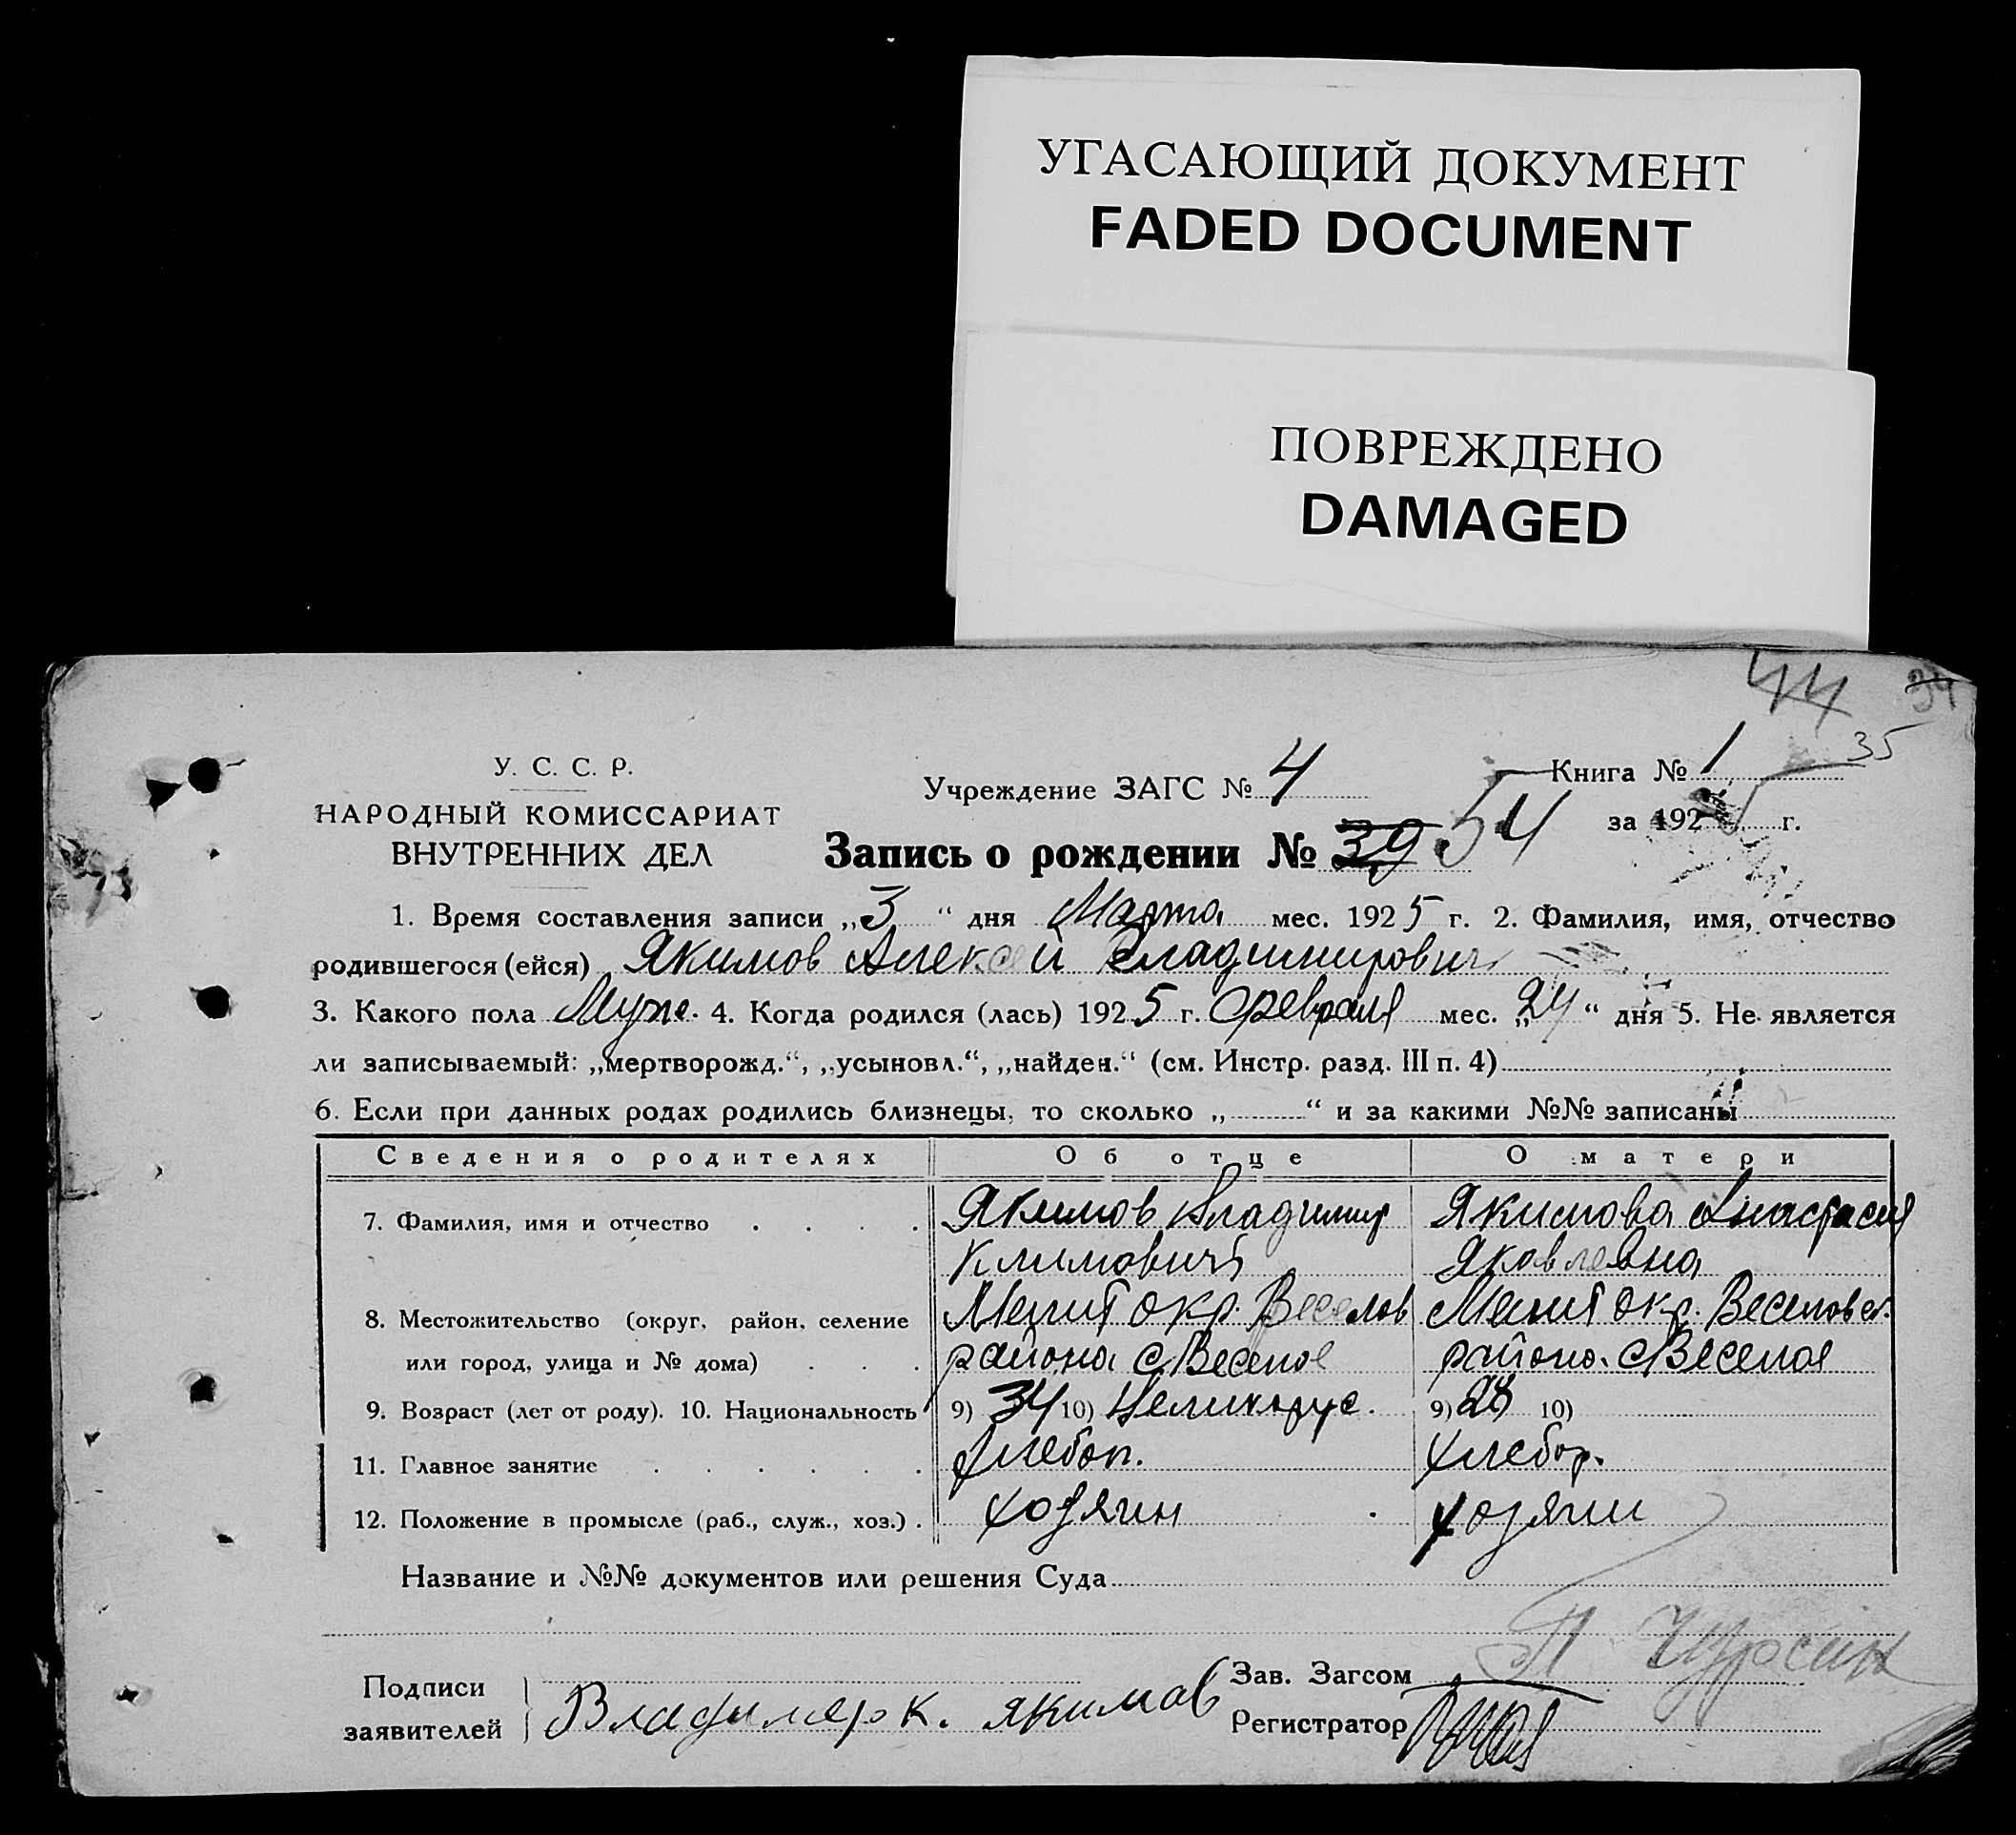 УГАСАЮЩИЙ ДОКУМЕНТ
FADED DOCUMENT
ПОВРЕЖДЕНО
DAMAGED
44 34
35
У. С. С. Р.
НАРОДНЫЙ КОМИССАРИАТ
ВНУТРЕННИХ ДЕЛ
Учреждение ЗАГС № 4
Книга № 1
за 1925 г.
Запись о рождении № 39 54
1. Время составления записи „3“ дня Марта мес. 1925 г. 2. Фамилия, имя, отчество
родившегося (ейся) Якимов Алексей Владимирович
3. Какого пола Муж. 4. Когда родился (лась) 1925 г. Февраля мес. „24“ дня 5. Не является
ли записываемый: „мертворожд.“, „усыновл.“, „найден.“ (см. Инстр. разд. III п. 4)
6. Если при данных родах родились близнецы, то сколько „ “ и за какими №№ записаны
Сведения о родителях Об отце О матери
7. Фамилия, имя и отчество Якимов Владимир Якимова Анастасия
Климович Яковлевна
8. Местожительство (округ, район, селение Мелит окр. Веселов Мелит окр. Веселовск.
или город, улица и № дома) района с Веселое района с Веселое
9. Возраст (лет от роду). 10. Национальность 9) 34 10) Великорус. 9) 28 10)
11. Главное занятие Хлебоп. Хлебор.
12. Положение в промысле (раб., служ., хоз.) хозяин хозяин
Название и №№ документов или решения Суда
Подписи
заявителей Владимер К. Якимов
Зав. Загсом
Регистратор